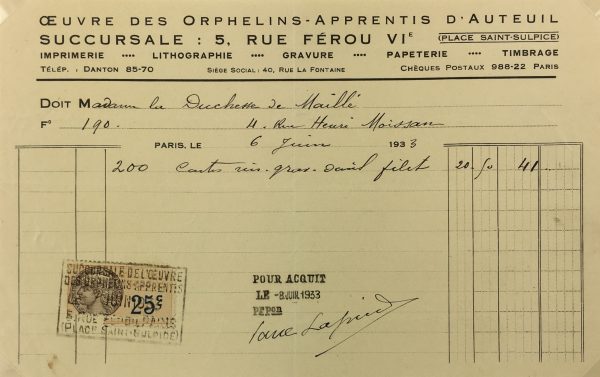 ŒUVRE DES ORPHELINS-APPRENTIS D'AUTEUIL
SUCCURSALE : 5, RUE FÉROU VIE (PLACE SAINT-SULPICE)
IMPRIMERIE •••• LITHOGRAPHIE •••• GRAVURE •••• PAPETERIE •••• TIMBRAGE
TÉLÉP. : DANTON 85-70 SIÈGE SOCIAL : 40, RUE LA FONTAINE CHÈQUES POSTAUX 988-22 PARIS
DOIT Madame la Duchesse de Maillé
Fº 190. 4. Rue Henri Moissan
PARIS, LE 6 Juin 1933
200 Cartes vis. grav. deuil filet 20 50 41
SUCCURSALE DE L'ŒUVRE
DES ORPHELINS-APPRENTIS
25c
(PLACE SAINT-SULPICE)
POUR ACQUIT
LE -8 JUIN 1933